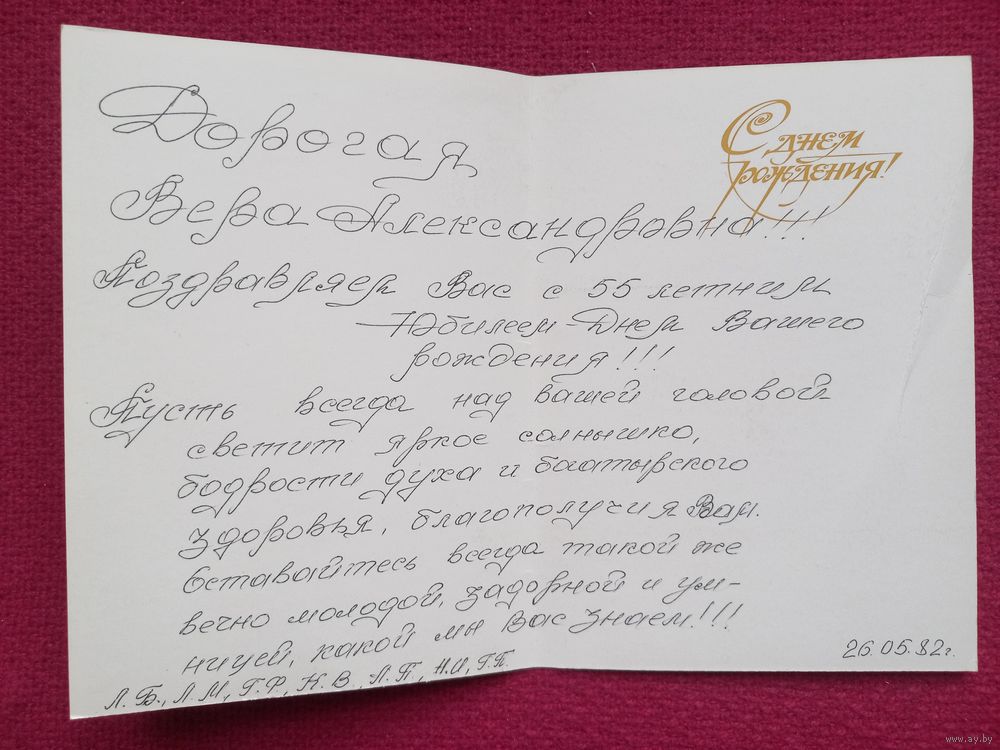 С днем
рождения!
Дорогая
Вера Александровна!!!
Поздравляем Вас с 55 летним
Юбилеем - Днем Вашего
рождения!!!
Пусть всегда над вашей головой
светит яркое солнышко,
бодрости духа и богатырского
здоровья, благополучия Вам.
Оставайтесь всегда такой же
вечно молодой, задорной и ум-
ницей, какой мы Вас знаем!!!
Л.Б., Л.М., Г.Ф., К.В., Л.П., Н.И, Г.П.
26.05.82г.
www.ay.by